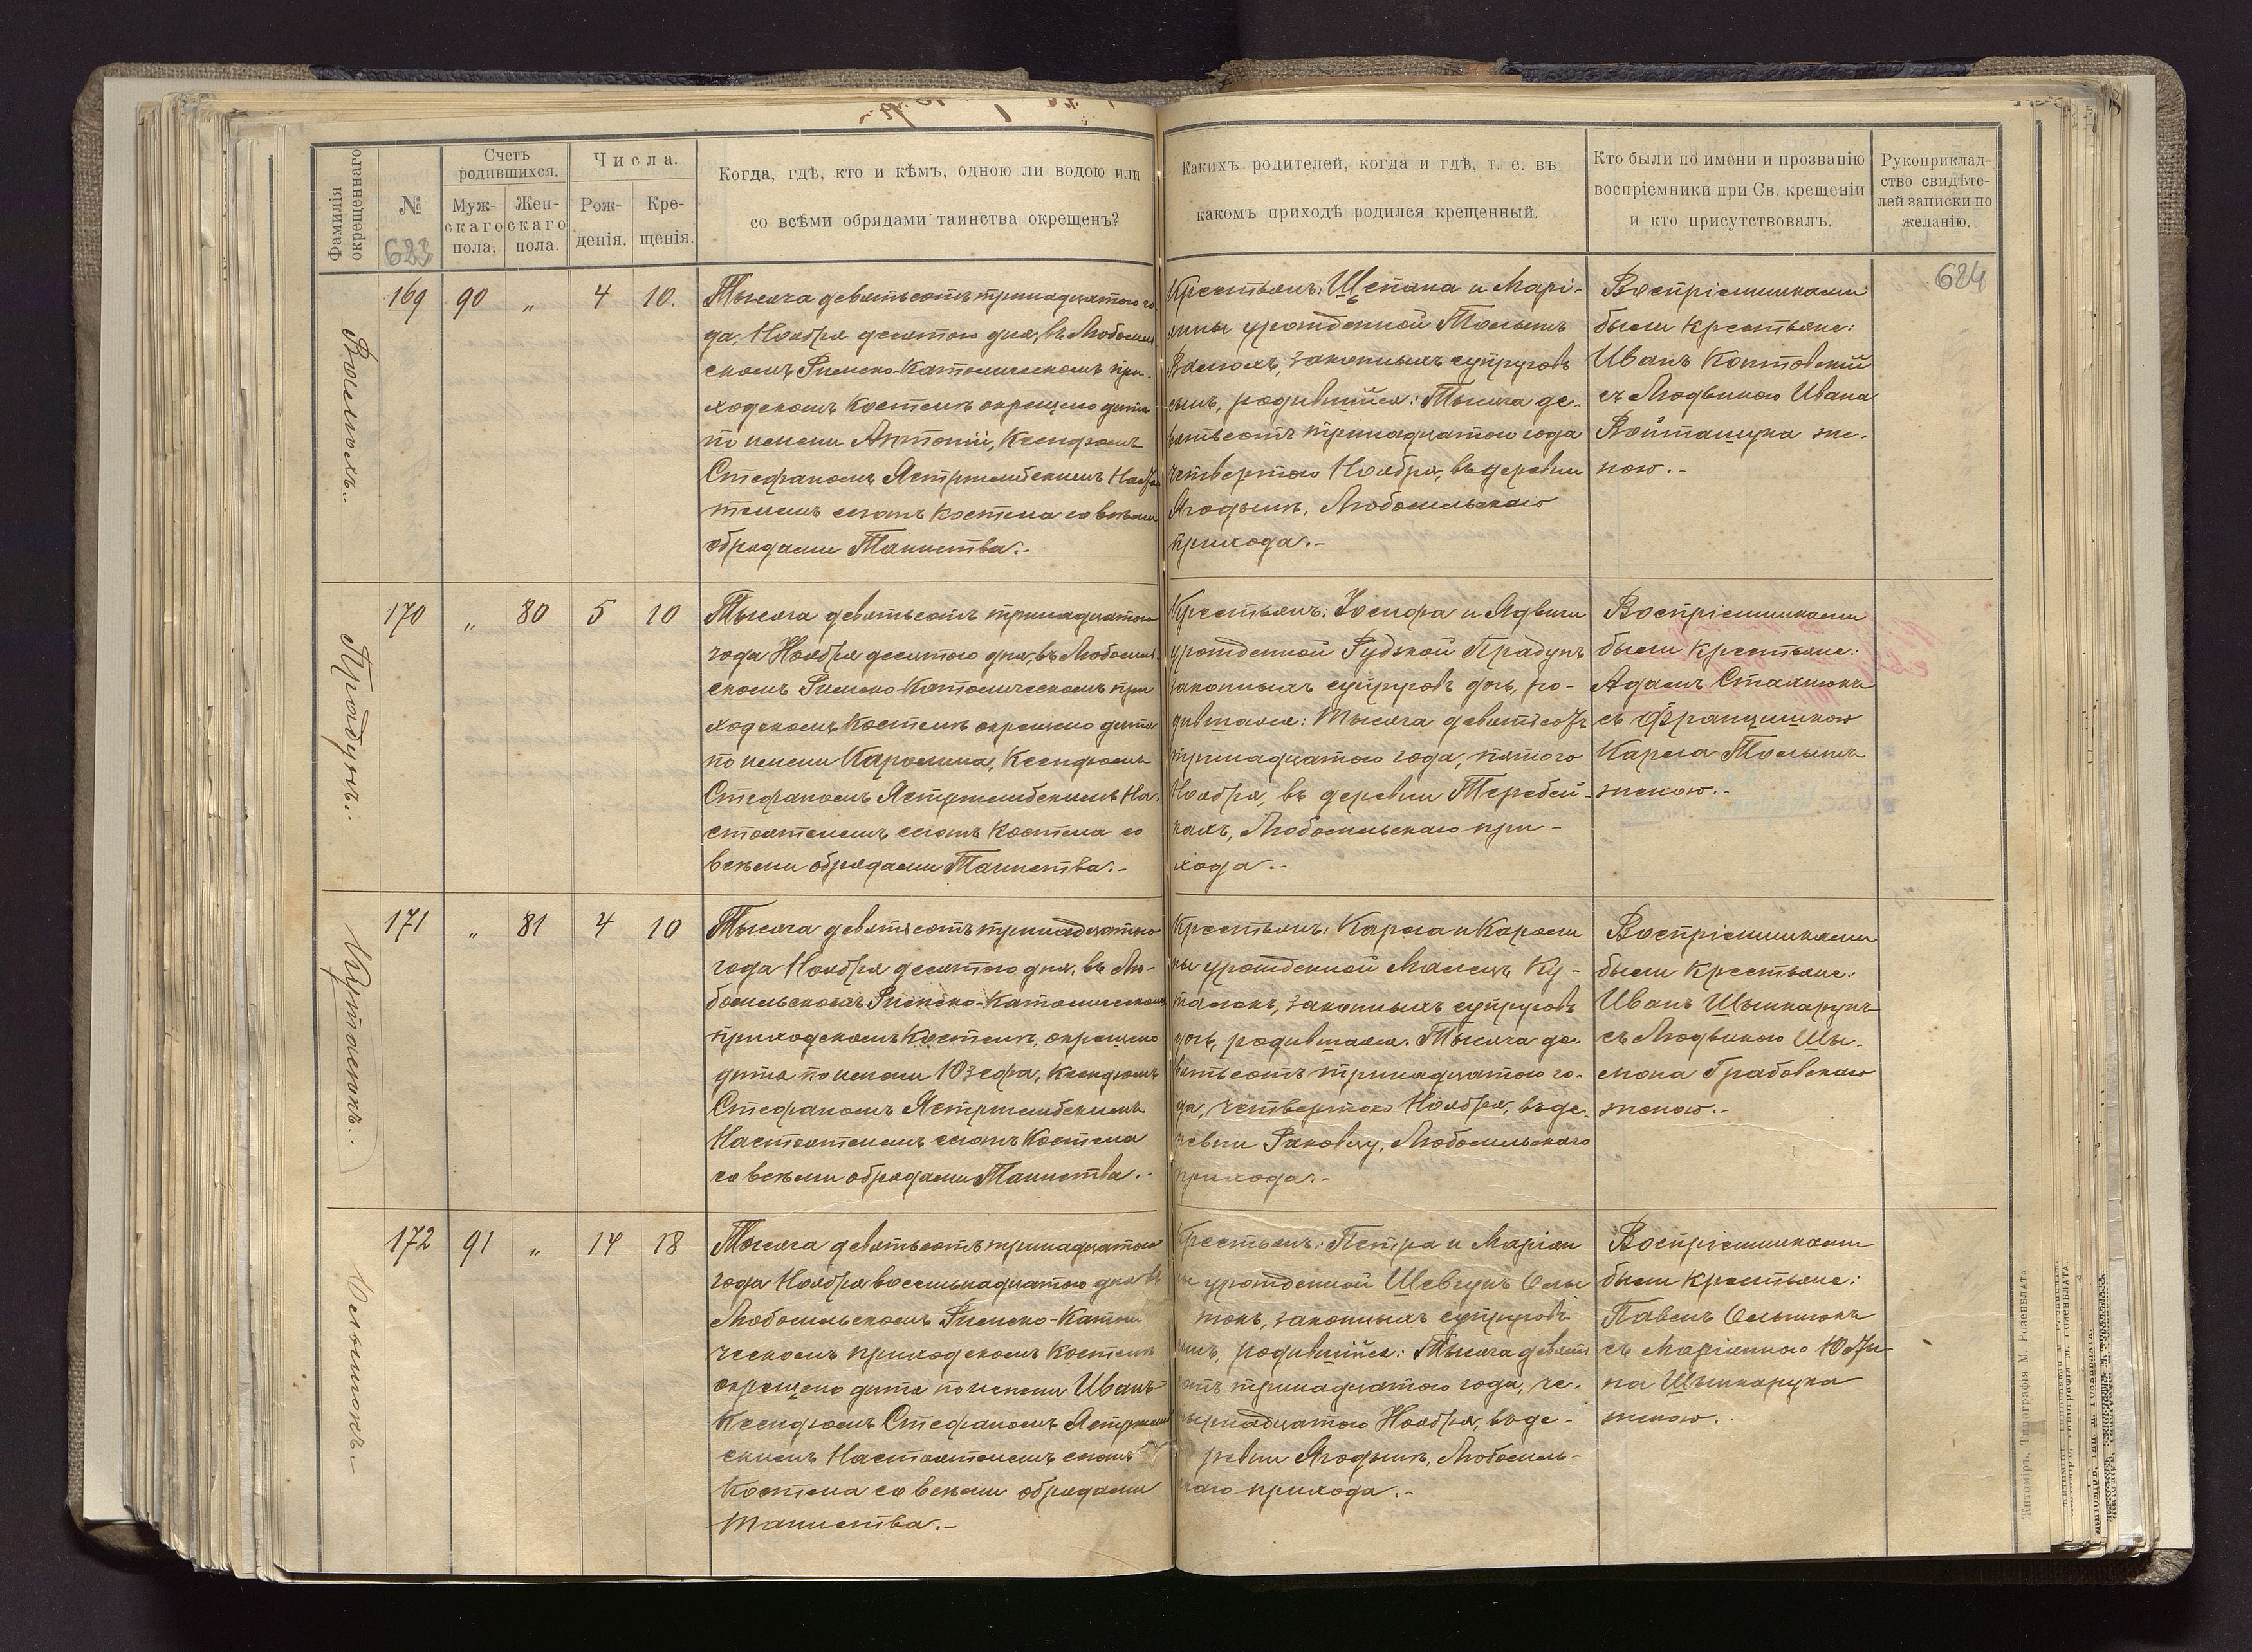 Фамилія окрещеннаго
№
Счетъ родившихся.
Муж-скаго пола.
Жен-скаго пола.
Числа.
Рож-денія.
Кре-щенія.
Когда, гдѣ, кто и кѣмъ, одною ли водою или
со всѣми обрядами таинства окрещенъ?
Какихъ родителей, когда и гдѣ, т. е. въ
какомъ приходѣ родился крещенный.
Кто были по имени и прозванію
воспріемники при Св. крещеніи
и кто присутствовалъ.
Рукоприклад-
ство свидѣте-
лей записки по
желанію.
623
624
169 90 „ 4 10.
Тысяча девятьсотъ тринадцатаго го
да, Ноября десятаго дня, въ Любомль
скомъ Римско-Католическомъ при-
ходскомъ Костелѣ окрещено дитя
по имени Антоній, Ксендзомъ
Стефаномъ Ястржембскимъ Настоя
телемъ сего Костела со всѣми
обрядами Таинства.-
Крестьянъ: Щепана и Марі-
янны урожденной
законныхъ супруговъ
сынъ, родившійся: Тысяча де-
вятьсотъ тринадцатаго года
четвертаго Ноября, въ деревни
Ягодынѣ, Любомльскаго
прихода.-
Воспріемниками
были крестьяне:
Иванъ Контовскій
съ Людвикою Ивана
Войтащука же-
ною.-
Прадунъ..
170 „ 80 5 10
Тысяча девятьсотъ тринадцатаго
года Ноября десятаго дня, въ Любомль-
скомъ Римско-Католическомъ при
ходскомъ Костелѣ окрещено дитя
по имени Каролина, Ксендзомъ
Стефаномъ Ястржембскимъ На-
стоятелемъ сего Костела со
всѣми обрядами Таинства.-
Крестьянъ: Іосифа и Ядвиги
урожденной Рудзкой Прадунъ
законныхъ супруговъ дочь, ро-
дившаяся: Тысяча девятьсотъ
тринадцатаго года, пятого
Ноября, въ деревни Теребей-
кахъ, Любомльскаго при-
хода.-
Воспріемниками
были Крестьяне:
Адамъ Стахнюкъ
съ Францишкою
Карла
женою.-
Куталюкъ..
171 „ 81 4 10
Тысяча девятьсотъ тринадцатаго
года Ноября десятаго дня, въ Лю-
бомльскомъ Римско-Католическомъ
приходскомъ Костелѣ, окрещено
дитя по имени Юзефа, Ксендзомъ
Стефаномъ Ястржембскимъ
Настоятелемъ сего Костела
со всѣми обрядами Таинства.-
Крестьянъ: Карла и Кароли
ны урожденной Ку-
талюкъ, законныхъ супруговъ
дочь, родившаяся: Тысяча де-
вятьсотъ тринадцатаго го-
да, четвертаго Ноября, въ де-
ревни Раковцу, Любомльскаго
прихода.-
Воспріемниками
были Крестьяне:
Иванъ Шынкарукъ
съ Людвикою Шы-
мона Грабовскаго
женою.-
Ольшюкъ
172 91 „ 14 18
Тысяча девятьсотъ тринадцатаго
года Ноября восемьнадцатаго дня въ
Любомльскомъ Римско-Катол
ческомъ приходскомъ Костелѣ
окрещено дитя по имени Иванъ
Ксендзомъ Стефаномъ Ястржемб
скимъ Настоятелемъ сего
Костела со всѣми обрядами
Таинства.-
Крестьянъ: Петра и Маріян
ны урожденной Шевчукъ
законныхъ супруговъ
сынъ, родившійся: Тысяча девять
сотъ тринадцатаго года, че-
тырнадцатаго Ноября, въ де-
ревни Ягодынѣ, Любомль-
скаго прихода.-
Воспріемниками
были крестьяне:
Павелъ
съ Маріянною Юзфи-
на Шынкарука
женою.
Житоміръ, Типографія М. Розенблата.